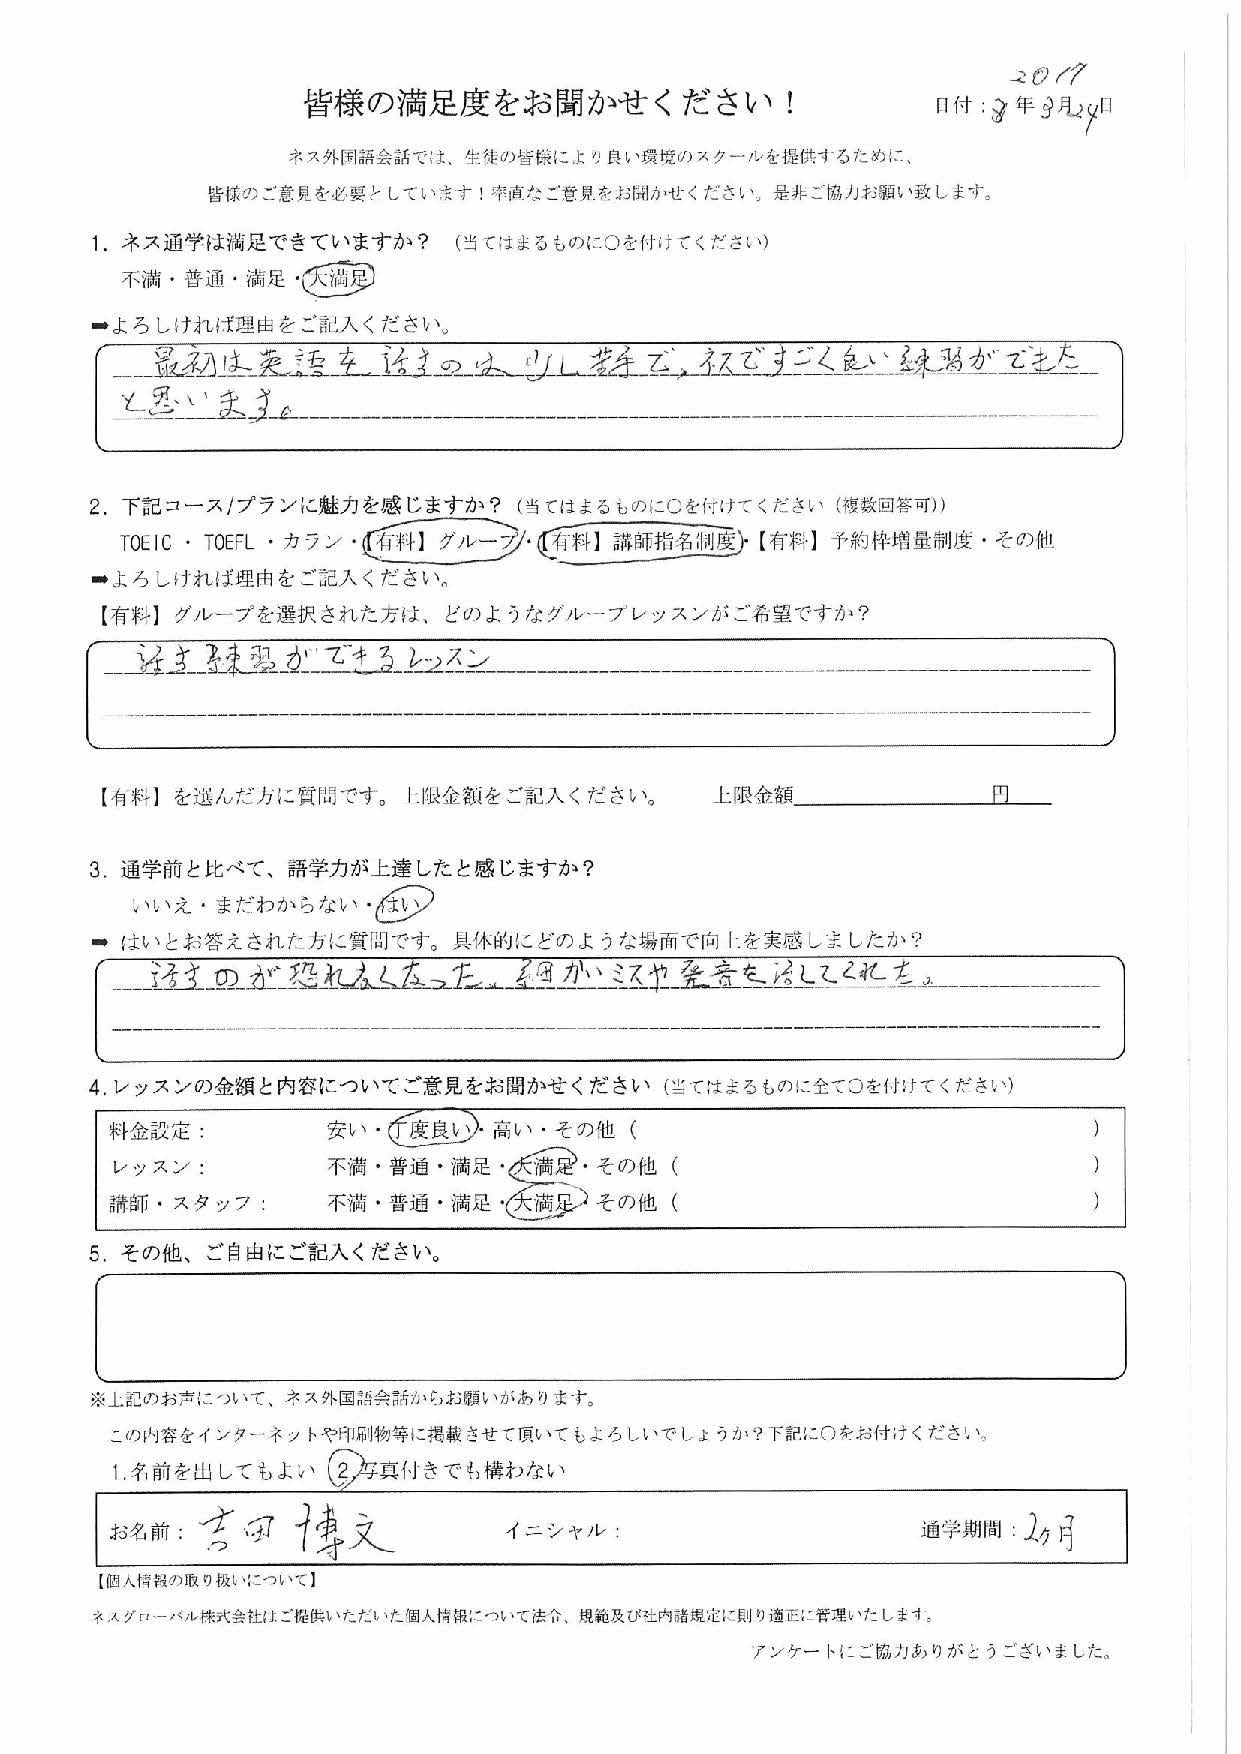 2017
皆様の満足度をお聞かせください！
日付：8年3月24日
ネス外国語会話では、生徒の皆様により良い環境のスクールを提供するために、
皆様のご意見を必要としています！率直なご意見をお聞かせください。是非ご協力お願い致します。
1. ネス通学は満足できていますか？ （当てはまるものに○を付けてください）
不満・普通・満足・大満足
➡よろしければ理由をご記入ください。
最初は英語を話すのは少し苦手で、ネスですごく良い練習ができた
と思います。
2. 下記コース/プランに魅力を感じますか？（当てはまるものに○を付けてください（複数回答可））
TOEIC ・ TOEFL ・カラン・【有料】グループ・【有料】講師指名制度・【有料】予約枠増量制度・その他
➡よろしければ理由をご記入ください。
【有料】グループを選択された方は、どのようなグループレッスンがご希望ですか？
話す練習ができるレッスン
【有料】を選んだ方に質問です。上限金額をご記入ください。 上限金額 円
3. 通学前と比べて、語学力が上達したと感じますか？
いいえ・まだわからない・はい
➡ はいとお答えされた方に質問です。具体的にどのような場面で向上を実感しましたか？
話すのが恐れなくなった。細かいミスや発音を してくれた。
4.レッスンの金額と内容についてご意見をお聞かせください（当てはまるものに全て○を付けてください）
料金設定： 安い・丁度良い・高い・その他（ ）
レッスン： 不満・普通・満足・大満足・その他（ ）
講師・スタッフ： 不満・普通・満足・大満足・その他（ ）
5. その他、ご自由にご記入ください。
※上記のお声について、ネス外国語会話からお願いがあります。
この内容をインターネットや印刷物等に掲載させて頂いてもよろしいでしょうか？下記に○をお付けください。
1.名前を出してもよい 2.写真付きでも構わない
お名前：吉田 博文 イニシャル： 通学期間：2ヶ月
【個人情報の取り扱いについて】
ネスグローバル株式会社はご提供いただいた個人情報について法令、規範及び社内諸規定に則り適正に管理いたします。
アンケートにご協力ありがとうございました。